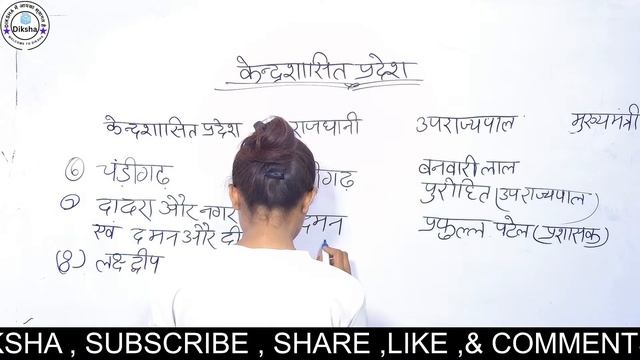 Diksha
केन्द्रशासित प्रदेश
केन्द्रशासित प्रदेश राजधानी उपराज्यपाल मुख्यमंत्री
⑥ चंड़ीगढ़ बनवारी लाल
पुरोहित (उपराज्यपाल)
⑦ दादरा और नगर
एवं दमन और दी दमन प्रफुल्ल पटेल (प्रशासक)
(8) लक्षद्वीप
KSHA , SUBSCRIBE , SHARE ,LIKE ,& COMMENT